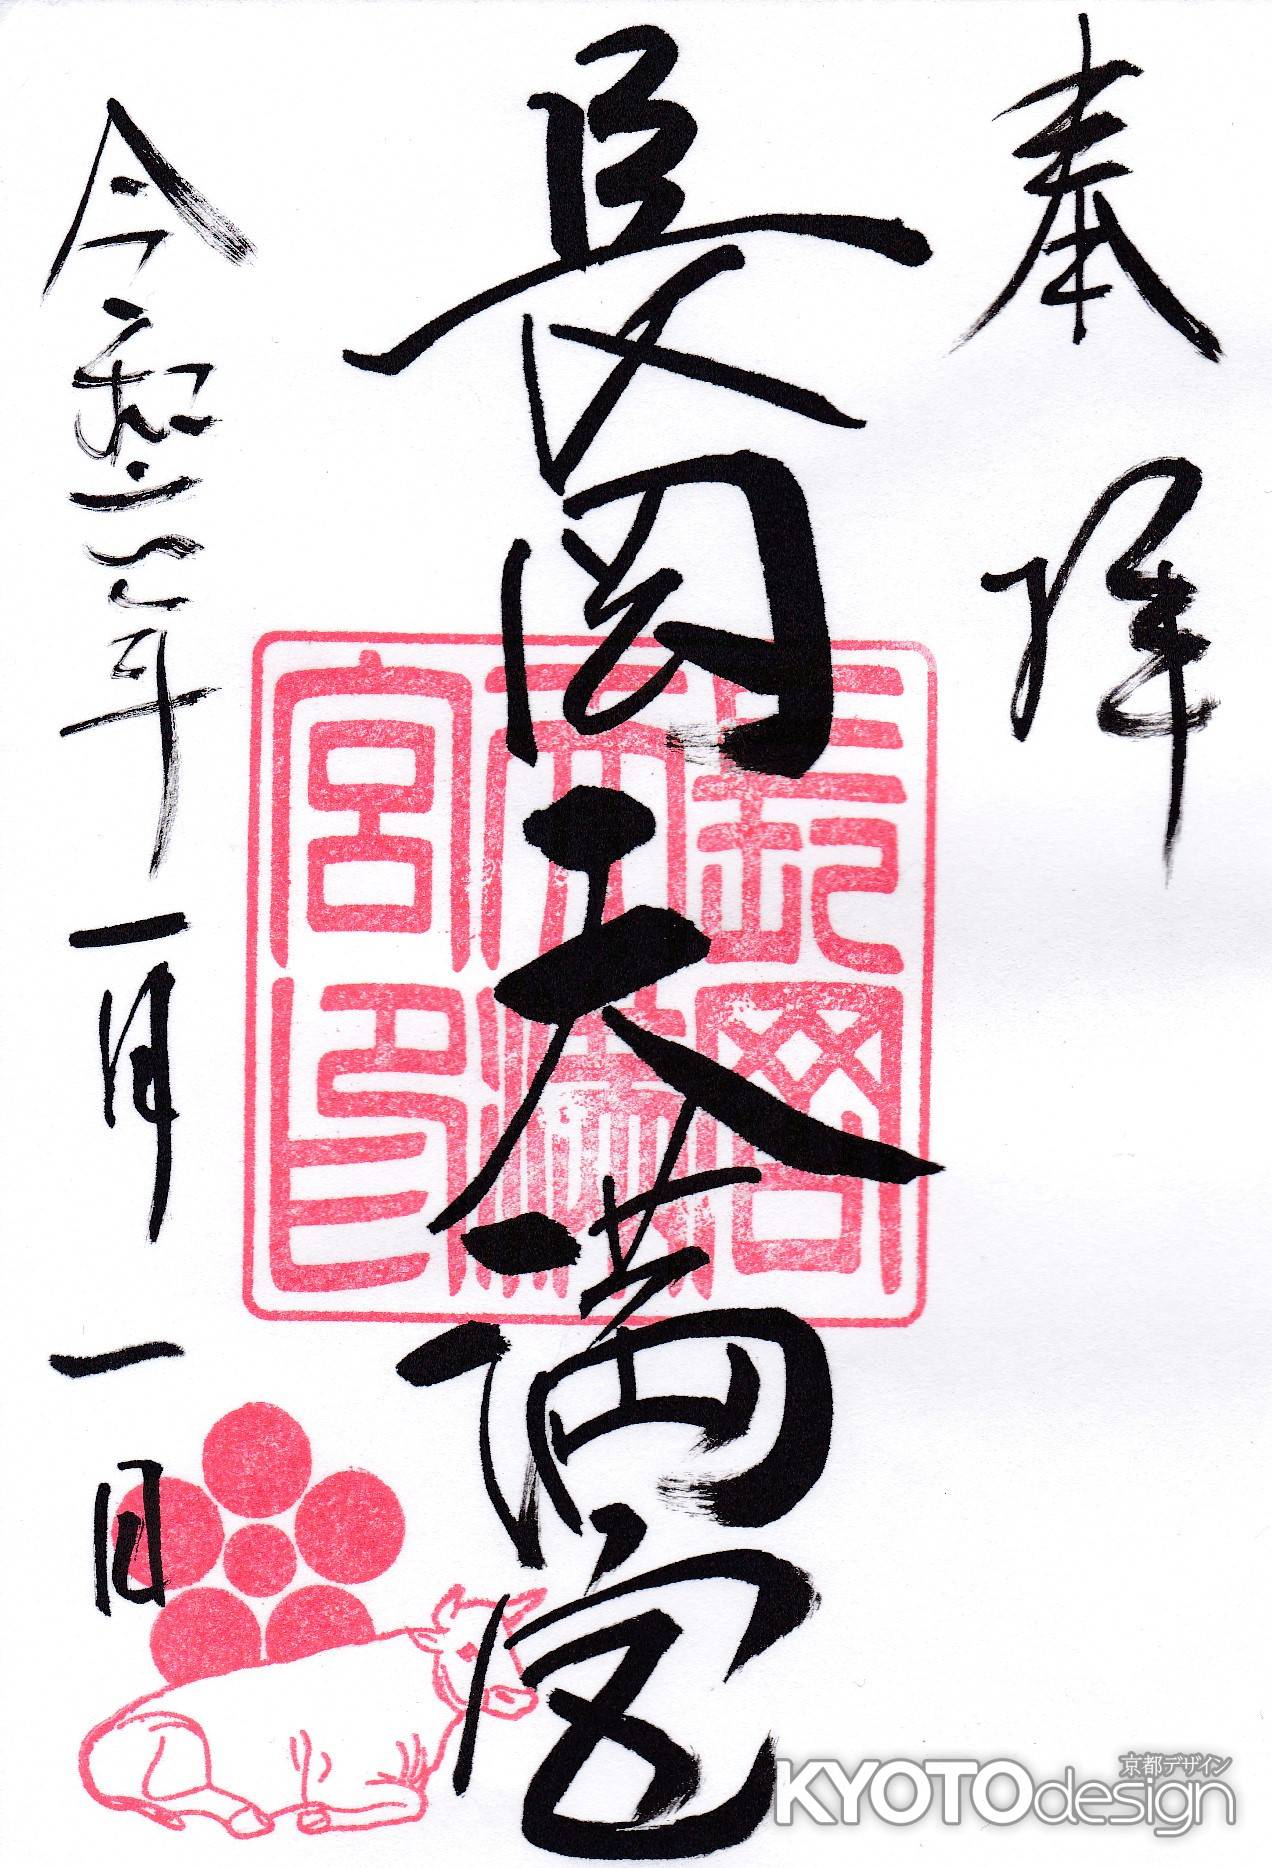 奉拝
長岡天満宮
長岡天満宮印
令和六年一月一日
京都デザイン
KYOTOdesign